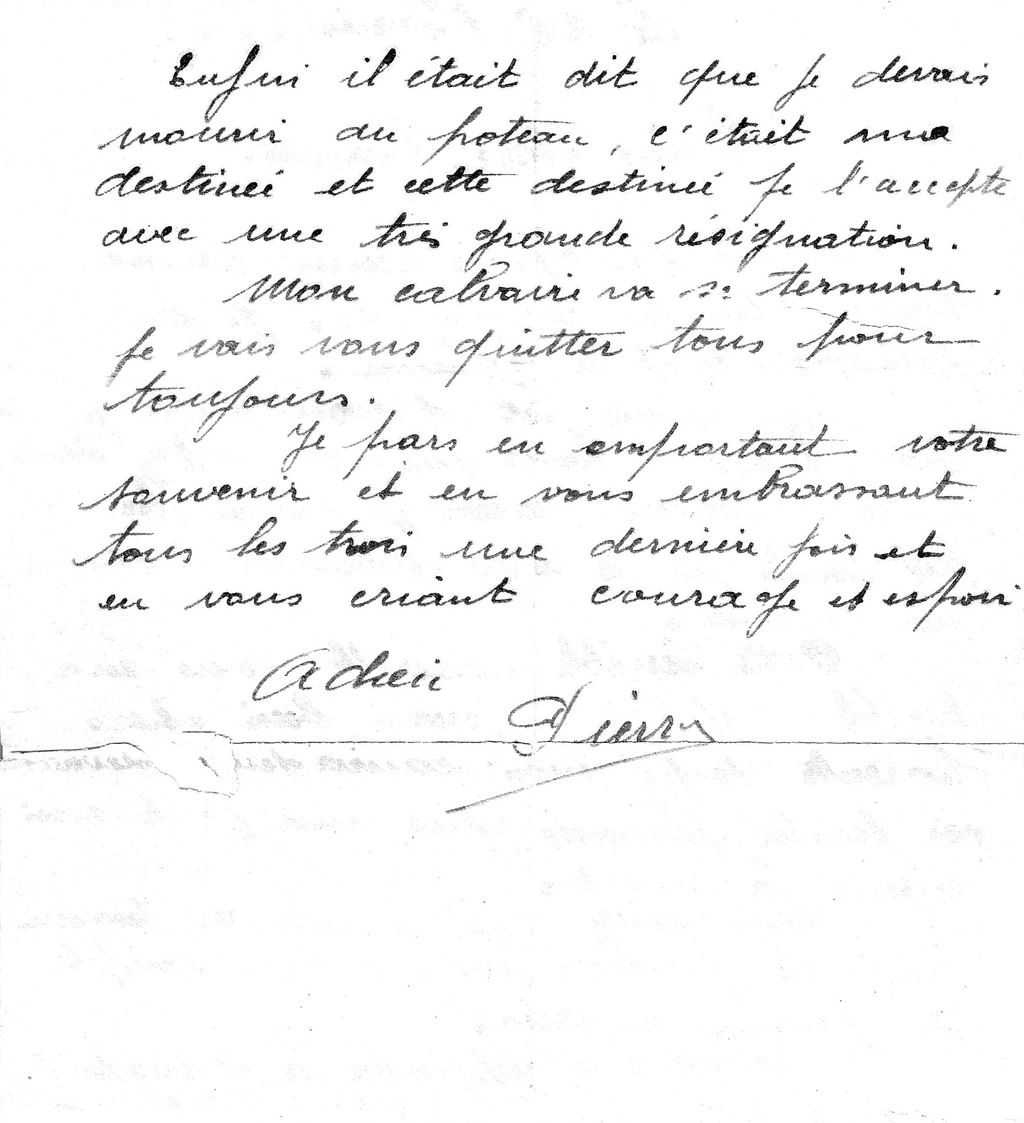 Enfin il était dit que je devais
mourir au poteau, c'était ma
destinée et cette destinée je l'accepte
avec une très grande résignation.
Mon calvaire va se terminer.
je vais vous quitter tous pour
toujours.
Je pars en emportant votre
souvenir et en vous embrassant
tous les trois une dernière fois et
en vous criant courage et espoir
Adieu
Pierre